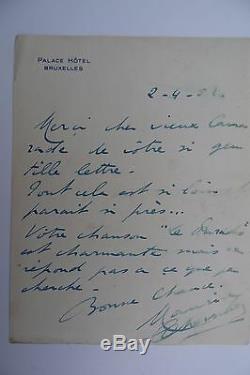 PALACE HÔTEL
BRUXELLES
2-4-
Merci cher vieux Cama
rade de si gen
tille lettre.
Tout cela est si loin
paraît si près...
Votre chanson "le
est charmante mais
répond pas a ce que je
cherche.
Bonne Chance.
Mauri
Chevalier